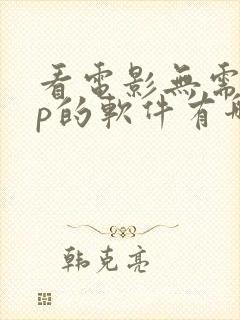 看電影無需
p的軟件有哪
韩克亮